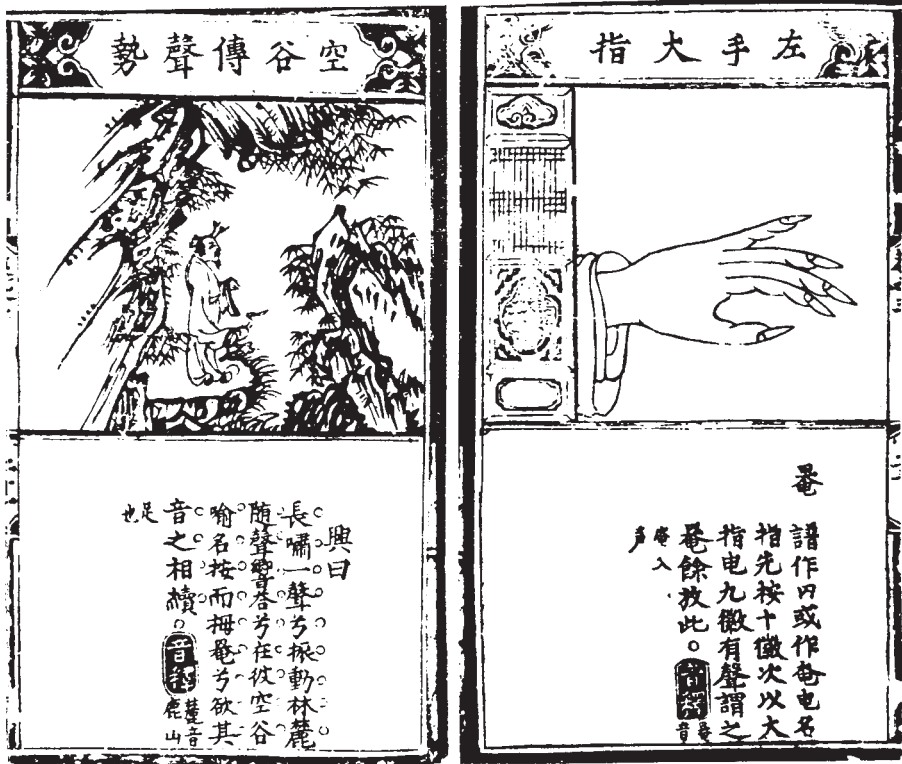 左手大指
罨
譜作或作奄电名
指先按十徽次以大
指电九徽有聲謂之
罨餘放此。音釋罨音
庵入声
空谷傳聲勢
興曰
長嘯一聲兮振動林麓
随聲響答兮在彼空谷
喻名按而拇罨兮欲其
音之相續。音釋麓音鹿山
足也